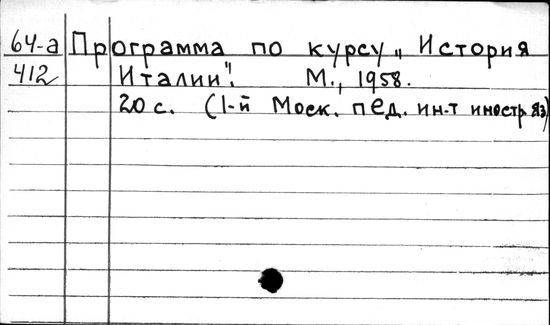 64-а Программа по курсу „История
412 Италии". М., 1958.
20 с. (1-й Моск. пед. ин-т иностр. яз)